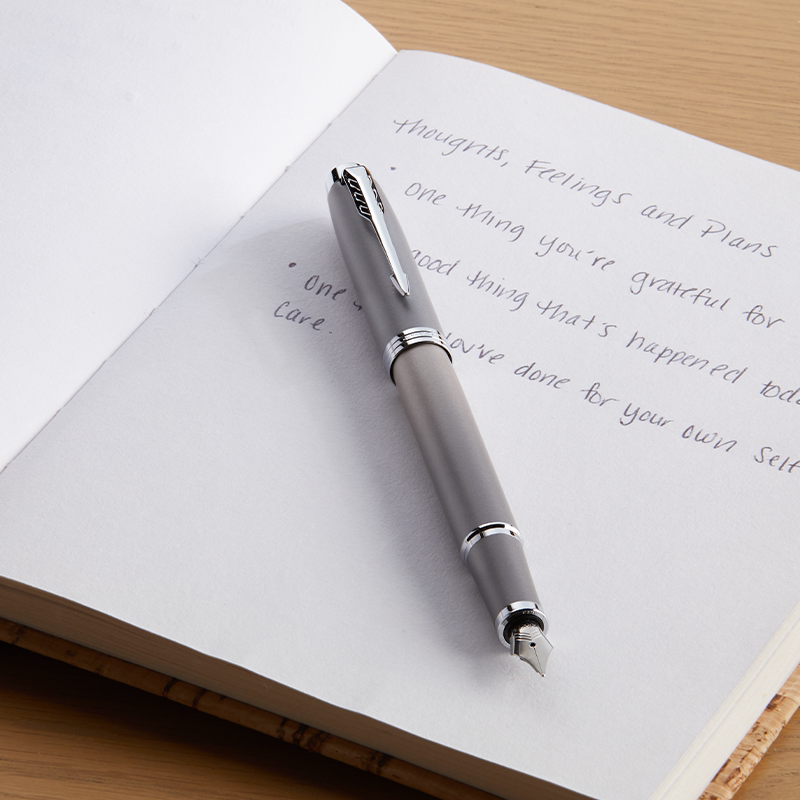 Thoughts, Feelings and Plans
• One thing you're grateful for
good thing that's happened
• One you've done for your own self
care.